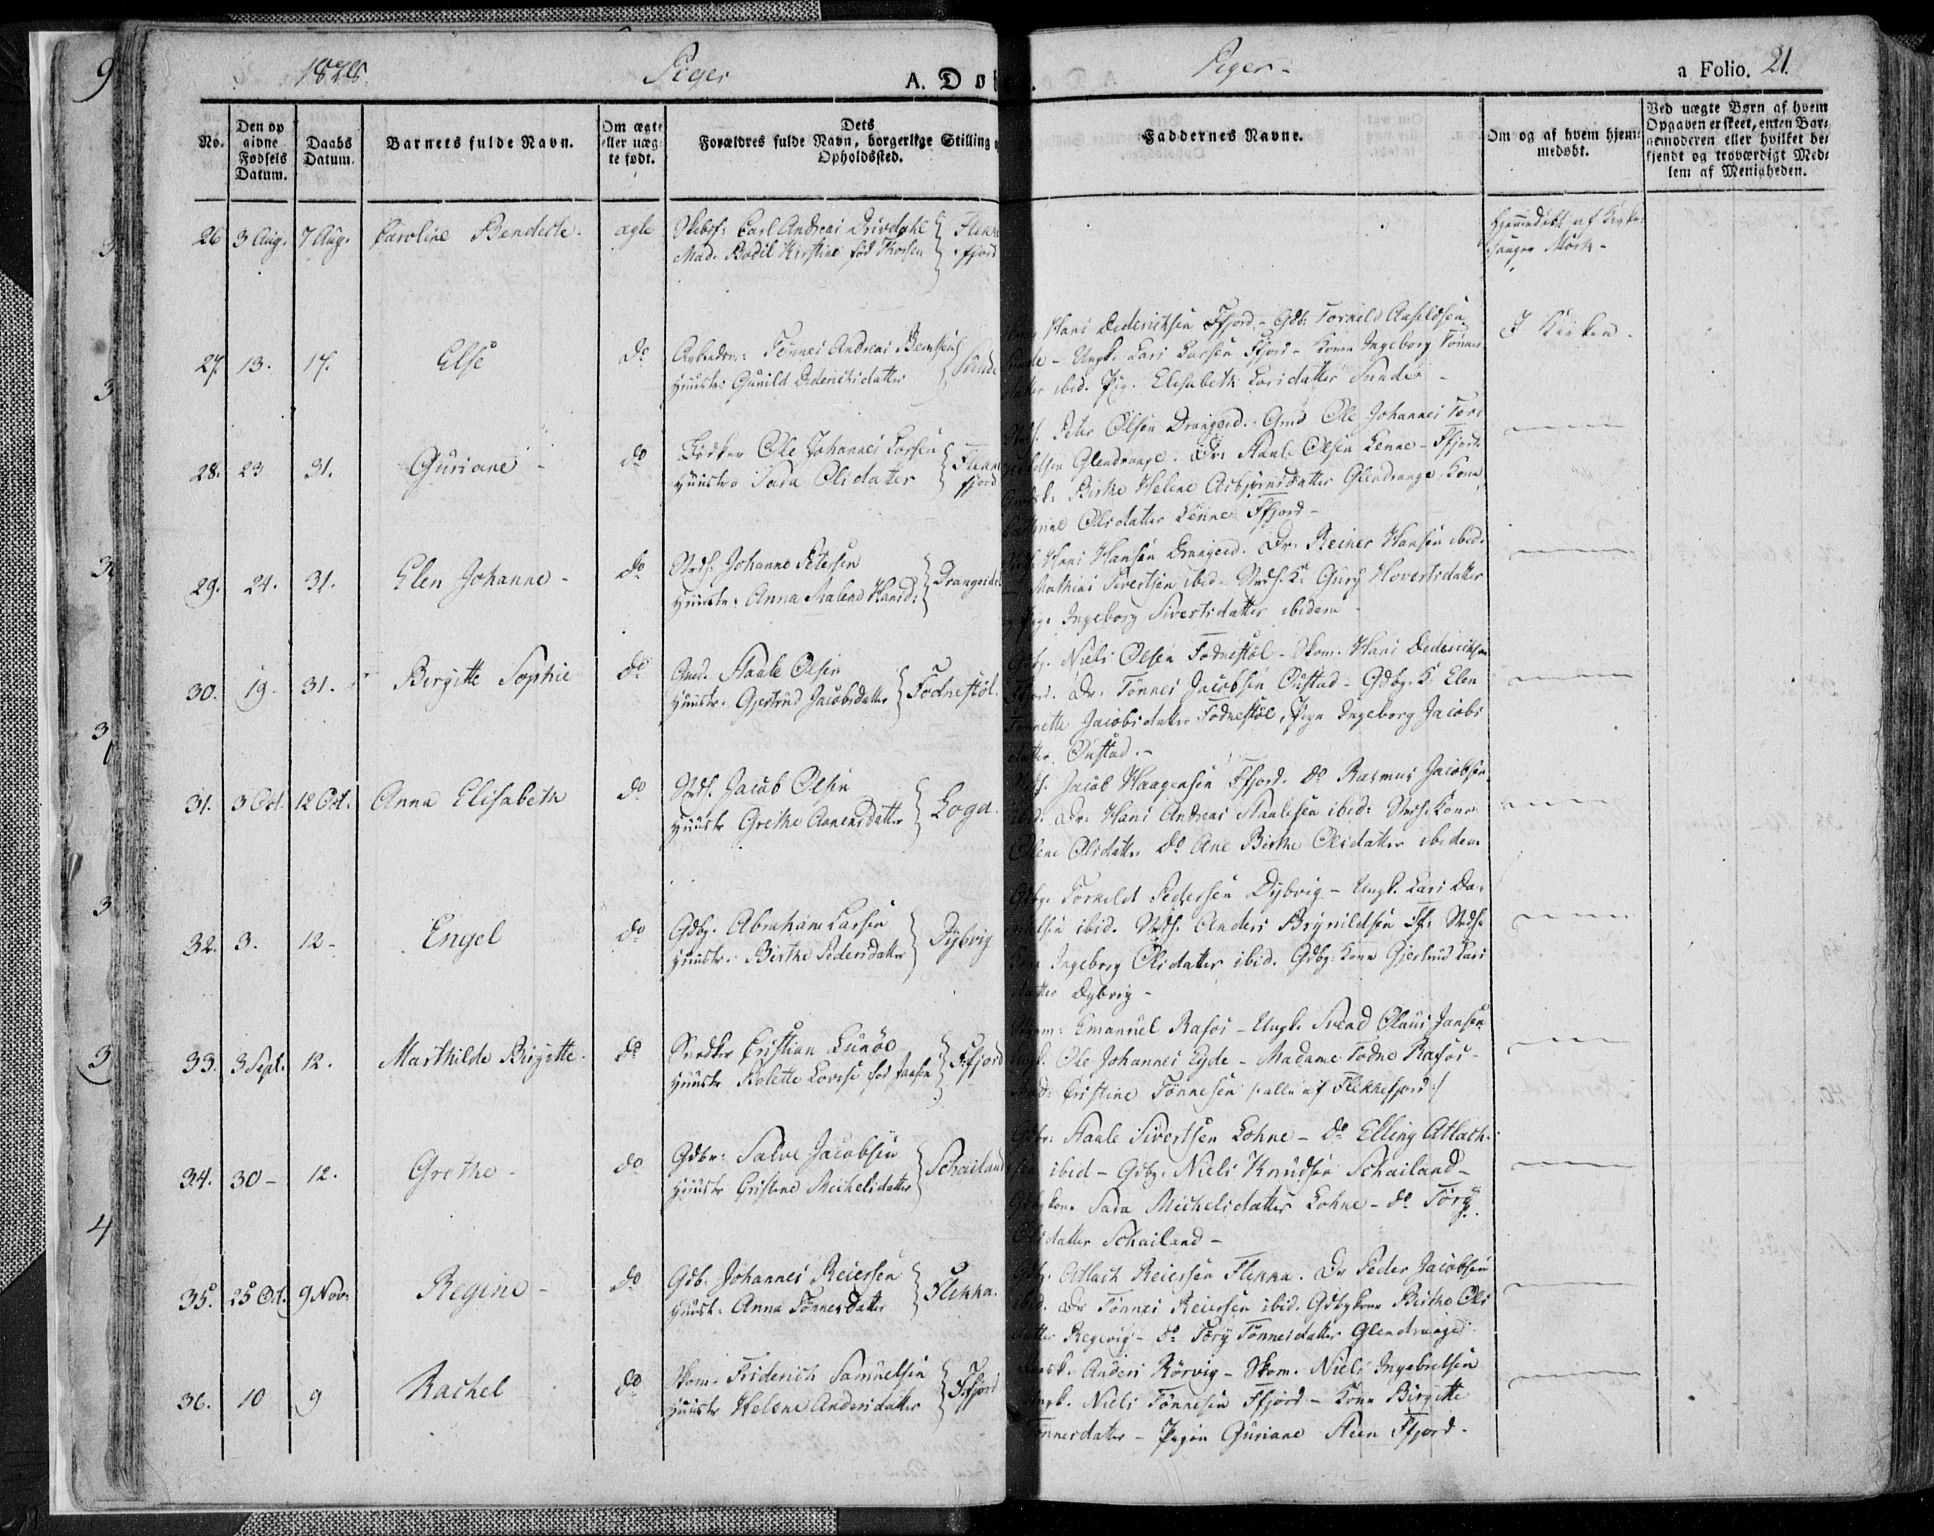 1828. Piger A. Døb
Piger - a Folio. 21.
No.
Den op
givne
Fødsels
Datum.
Daabs
Datum.
Barnets fulde Navn.
Om ægte
eller uæg
te født.
Dets
Forældres fulde Navn, borgerlige Stilling
Opholdssted.
Faddernes Navne.
Om og af hvem hjem
medøbt.
Ved uægte Børn af hvem
Opgaven er skeet, enten Bar-
nemoderen eller hvilket be-
kjendt og troværdigt Med-
lem af Menigheden.
26 3 Aug. 7 Aug. Caroline Bendecte ægte Skibsf: Carl Andreas Drivdahl
Mad. Bodil Kirstine fød
Flekke
fjord
Hjemmedøbt af
27. 13. 17. Else do Tønnes Andreas Berntsen
Huustr: Gunild Dideriksdatter
Hans Dederichsen Ffjord - Gdb:
Ungk. Lars Larsen Ffjord - Konen Ingeborg Tønnes
datter ibid. Pig. Elisabeth Larsdatter
I Kirken.
28. 23 31. Guriane - do Bødker Ole Johannes Larsen
Huustro Sara Olsdatter
Flekke
fjord
Peter Olsen Drangeid. Gmd Ole Johannes
Glendrange. Do Staale Olsen Lenne - Ffjord
Birthe Helene Asbjørnsdatter Glendrange Kone
Olsdatter Ffjord -
29. 24. 31. Elen Johanne - do Strds. Johanne Petersen
Huustr: Anna Malene Hansd:
Drangeid
Hans Hansen Drangeid. Do Reiner Hansen ibid.
Mathias Sivertsen ibid - Strds. K. Gury Hovertsdatter
Pige Ingeborg Sivertsdatter ibidem -
30. 19. 31. Birgitte Sophie do Staale Olsen
Huustr. Gjertrud Jacobsdatter
Fodnestøl.
Gdbr. Niels Olsen Fodnestøl - Skom. Hans Dederichsen
Do Tønnes Jacobsen Øustad - Gdbr. K. Elen
Tonnette Jacobsdatter Fodnestøl, Pige Ingeborg Jacobs
datter Øustad. -
31. 3 Oct. 12 Oct. Anna Elisabeth do Strds. Jacob Olsen
Huustr Grethe Aanensdatter
Loga.
Jacob Haagensen Ffjord. Do Rasmus Jacobsen
ibid. Do Hans Andreas Staalesen ibid: Strds. Kone
Olene Olsdatter Do Ane Birthe Olsdatter ibidem
32. 3. 12 - Engel do Gdbr. Abraham Larsen
Huustr. Birthe Pedersdatter
Dybvig
Gdbr. Torkild Pedersen Dybvig - Ungk. Lars Da-
nielsen ibid. Strds. Anders Brynildsen Ff: Strds.
Kone Ingeborg Olsdatter ibid. Gdbr: Kone Gjertrud Lars
datter Dybvig -
33. 3 Sept. 12. Marthilde Birgitte. do Snedker Cristian Lunøe
Huustr Bolette Lovise fød Jansen
Ffjord
Emanuel Rafos - Ungk. Svend Olaus Jansen
Ungk. Ole Johannes Eyde - Madame Todne Rafos -
Cristine Tønnesen /: alle af Flekkefjord :/
34. 30 - 12. Grethe - do Gdbr: Salve Jacobsen
Huustr Cristene Michelsdatter
Schailand
Gdbr: Staale Sivertsen Lohne - do Elling Atlach-
sen ibid - Gdbr: Niels Knudsen Schailand -
Gdbrkone Sara Michelsdatter Lohne - do Tory
Olsdatter Schailand -
35. 25 Oct. 9 Nov: Regine - do Gdb. Johannes Reiersen
Huust. Anna Tønnesdatter
Flikka.
Gdbr. Atlach Reiersen Flikka. Do Peder Jacobsen
ibid. Do Tønnes Reiersen ibid. Gdbrkone Birthe Ols
datter Regevig - do Tory Tønnesdatter Glendrange
36. 10 9 Rachel do Skom. Friderich Samuelsen
Huustr Helene Andersdatter
Ffjord
Anders Rørvig - Skom. Niels Ingebretsen
Ungk. Niels Tønnesen Ffjord - Kone Birgitte
Tønnesdatter - Pigen Guriane Steen Ffjord -